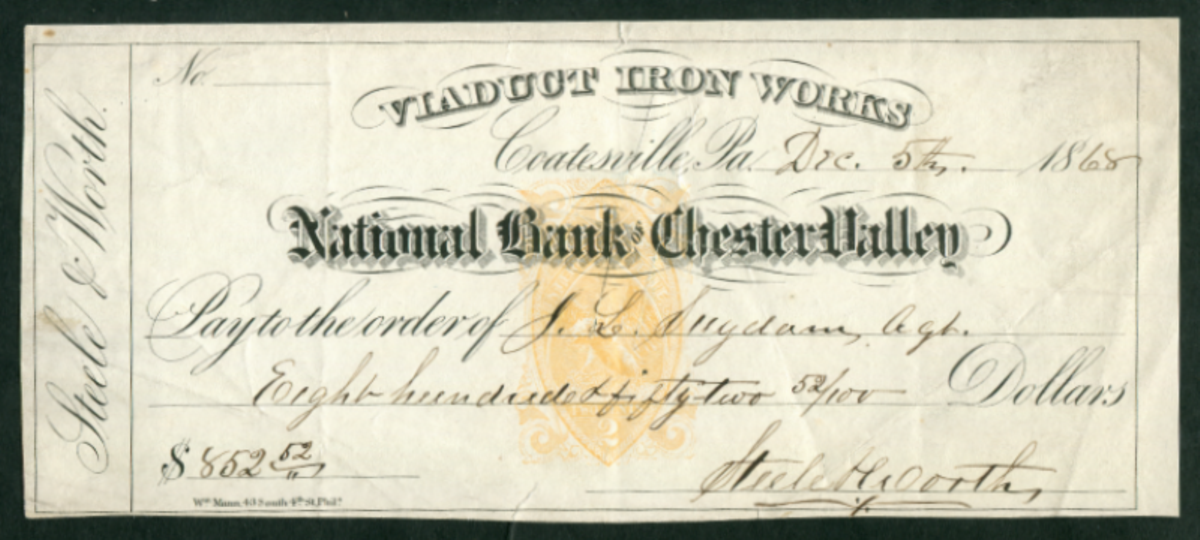 Steele & Worth.
No.
VIADUCT IRON WORKS
Coatesville, Pa. Dec. 5th. 1868
National Bank of Chester Valley
Pay to the order of J. L. Suydam, Agt.
Eight hundred & fifty two 52/100 Dollars
$ 852 52/"
Wm Mann, 43 South 4th St. Phila
Steele & Worth,